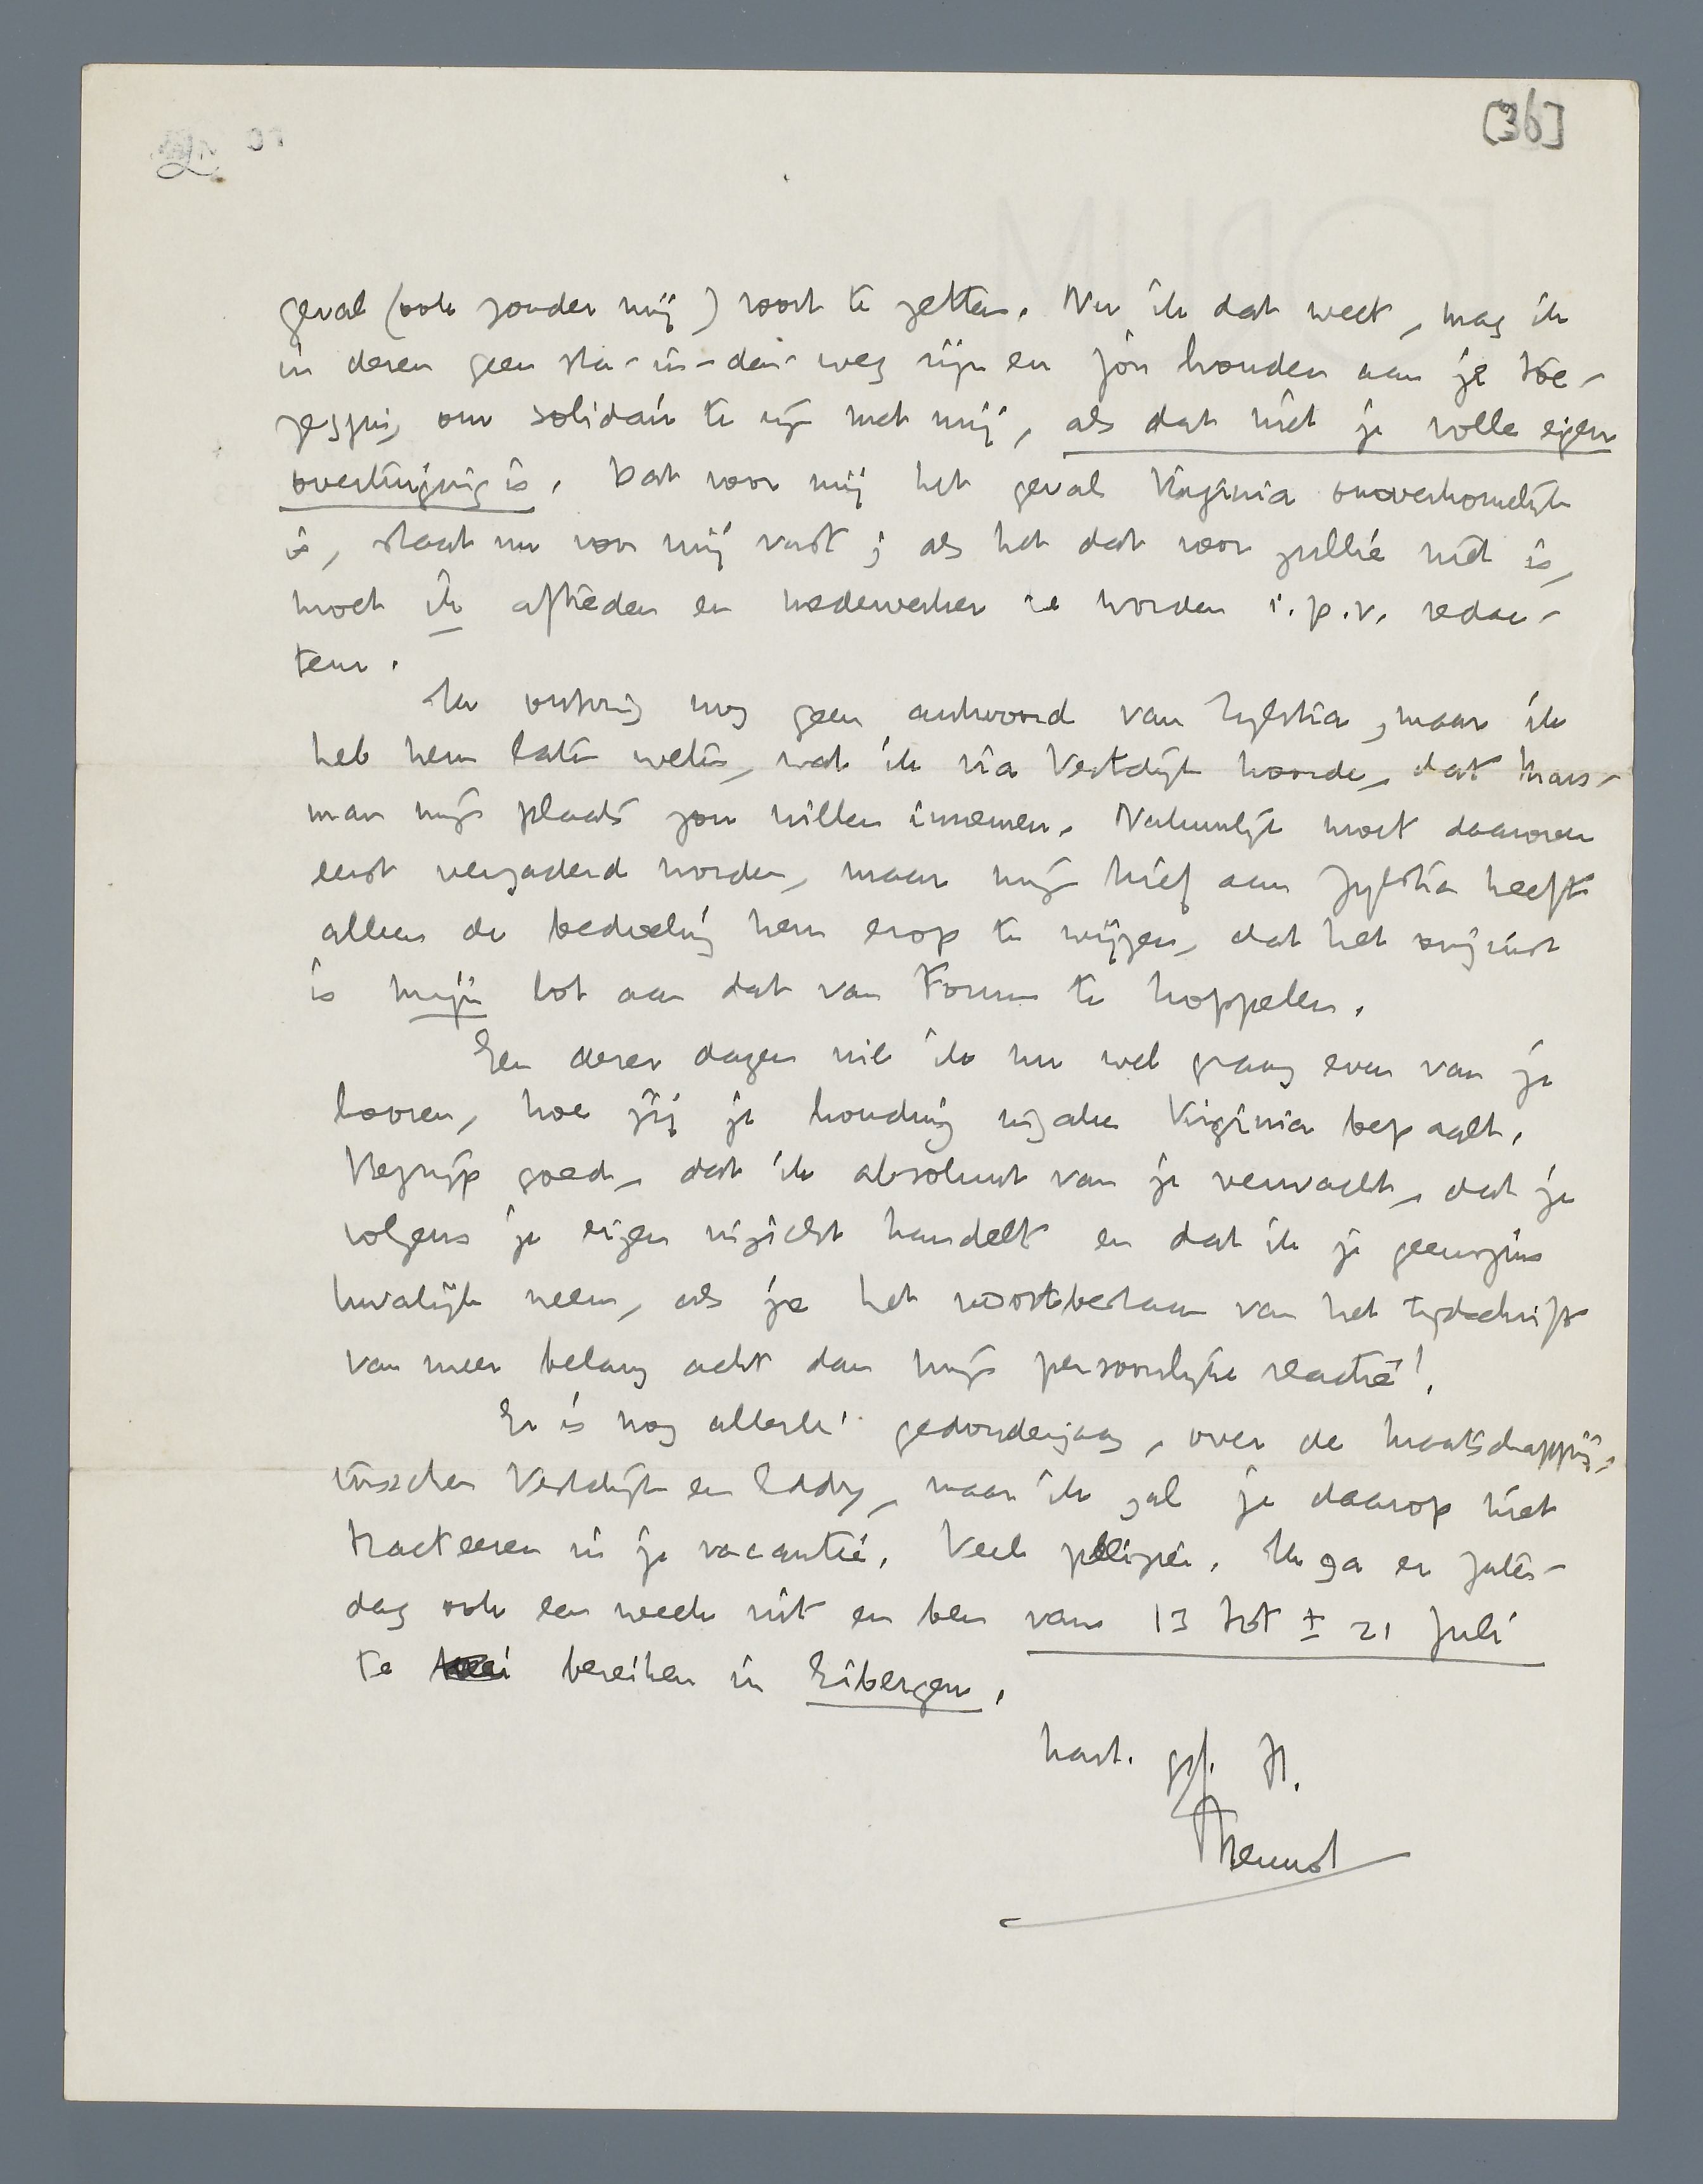 [36]
geval (ook zonder mij) voort te zetten. Nu ik dat weet, mag ik
in dezen geen sta-in-den-weg zijn en jou houden aan je toe-
zegging om solidair te zijn met mij, als dat niet je volle eigen
overtuiging is. Dat voor mij het geval Virginia onoverkomelijk
is, staat nu voor mij vast; als het dat voor jullie niet is,
moet ik aftreden en medewerker worden i.p.v. redac-
teur.
Ik ontving nog geen antwoord van Zijlstra, maar ik
heb hem laten weten, wat ik via Vestdijk hoorde, dat Mars-
man mijn plaats zou willen innemen. Natuurlijk moet daarover
eerst vergaderd worden, maar mijn brief aan Zijlstra heeft
alleen de bedoeling hem erop te wijzen, dat het onjuist
is mijn lot aan dat van Forum te koppelen.
Een dezer dagen wil ik nu wel graag even van je
hooren, hoe jij je houding inzake Virginia bepaalt.
Begrijp goed, dat ik absoluut van je verwacht, dat je
volgens je eigen inzicht handelt en dat ik je geenszins
kwalijk neem, als je het voortbestaan van het tijdschrift
van meer belang acht dan mijn persoonlijke reactie!
Er is nog allerlei gedonderjaag, over de maatschappij,
tusschen Vestdijk en Eddy, maar ik zal je daarop niet
tracteeren in je vacantie. Veel plezier. Ik ga er Zater-
dag ook een week uit en ben van 13 tot ± 21 Juli
te bereiken in Eibergen.
hart. gr. t.t.
Menno